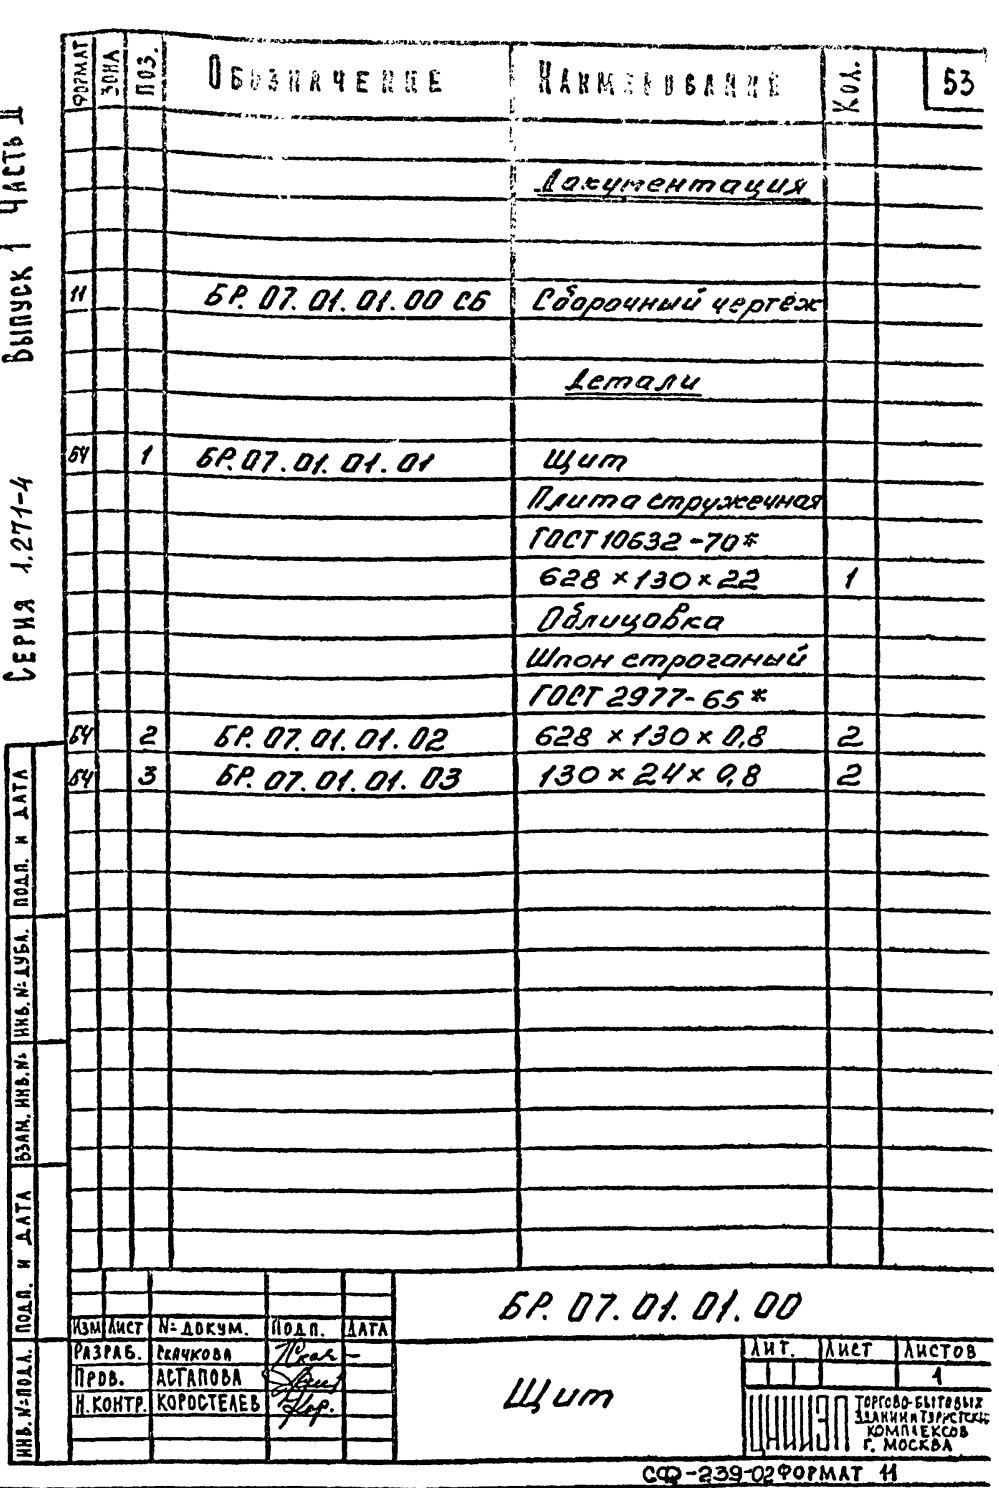 ФОРМАТ ЗОНА ПОЗ. ОБОЗНАЧЕНИЕ НАИМЕНОВАНИЕ КОЛ. 53
Документация
11 БР. 07. 01. 01. 00 СБ Сборочный чертёж
Детали
БЧ 1 БР. 07. 01. 01. 01 Щит
Плита стружечная
ГОСТ 10632-70*
628 × 130 × 22 1
Облицовка
Шпон строганый
ГОСТ 2977-65*
БЧ 2 БР. 07. 01. 01. 02 628 × 130 × 0,8 2
БЧ 3 БР. 07. 01. 01. 03 130 × 24 × 0,8 2
СЕРИЯ 1.271-4 ВЫПУСК 1 ЧАСТЬ II
ИНВ. № ПОДЛ. ПОДП. И ДАТА ВЗАМ. ИНВ. № ИНВ. № ДУБЛ. ПОДП. И ДАТА
БР. 07. 01. 01. 00
ИЗМ ЛИСТ № ДОКУМ. ПОДП. ДАТА
РАЗРАБ. СКАЧКОВА
ПРОВ. АСТАПОВА
Н.КОНТР. КОРОСТЕЛЕВ
Щит
ЛИТ. ЛИСТ ЛИСТОВ
1
ЦНИИЭП ТОРГОВО-БЫТОВЫХ
ЗДАНИЙ И ТУРИСТСКИХ
КОМПЛЕКСОВ
Г. МОСКВА
СФ-239-02 ФОРМАТ 11